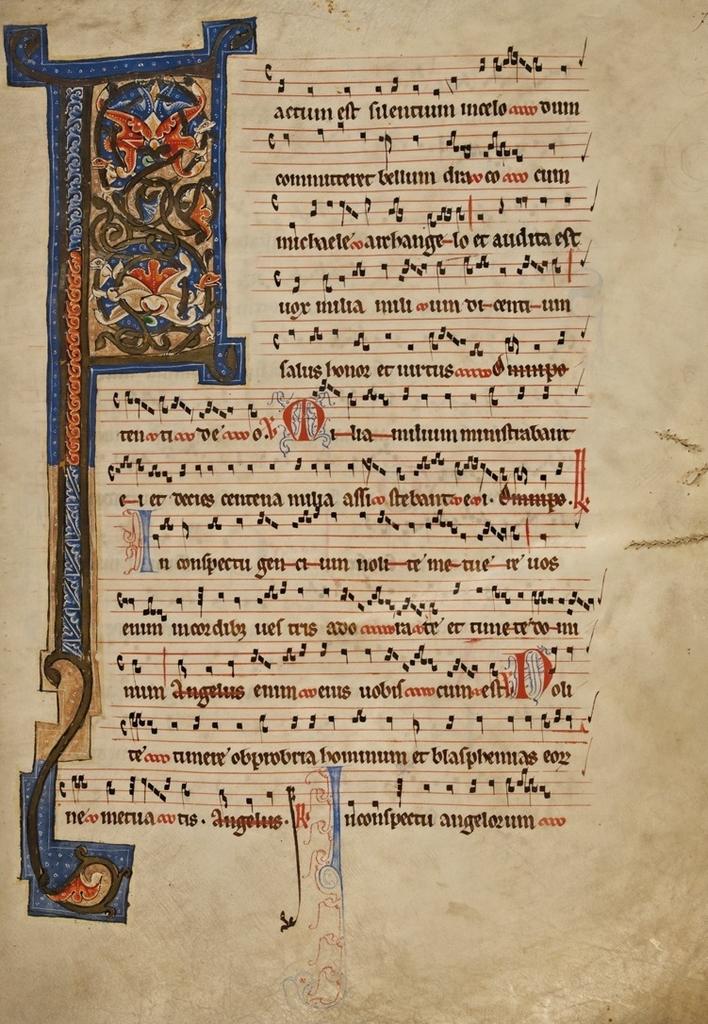 Factum est silentium in celo dum
committeret bellum draco cum
michaele archangelo et audita est
uox milia milium dicentium
salus honor et uirtus Omnipo
tenti deo. Milia milium ministrabant
ei et decies centena milia assistebant ei. Omnipo. R
In conspectu gencium nolite metuere uos
enim in cordibz uestris adorate et timete domi
num Angelus enim eius uobiscum est Noli
te timere obprobria hominum et blasphemias eorz
ne metuatis. Angelus. R In conspectu angelorum